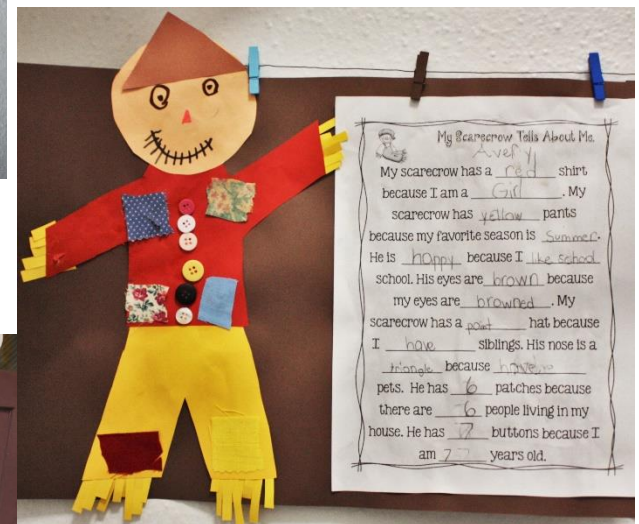 My Scarecrow Tells About Me.
Avery
My scarecrow has a red shirt
because I am a Girl. My
scarecrow has yellow pants
because my favorite season is Summer.
He is happy because I like school
school. His eyes are brown because
my eyes are browned. My
scarecrow has a point hat because
I have siblings. His nose is a
triangle because have
pets. He has 6 patches because
there are 6 people living in my
house. He has 7 buttons because I
am 7 years old.